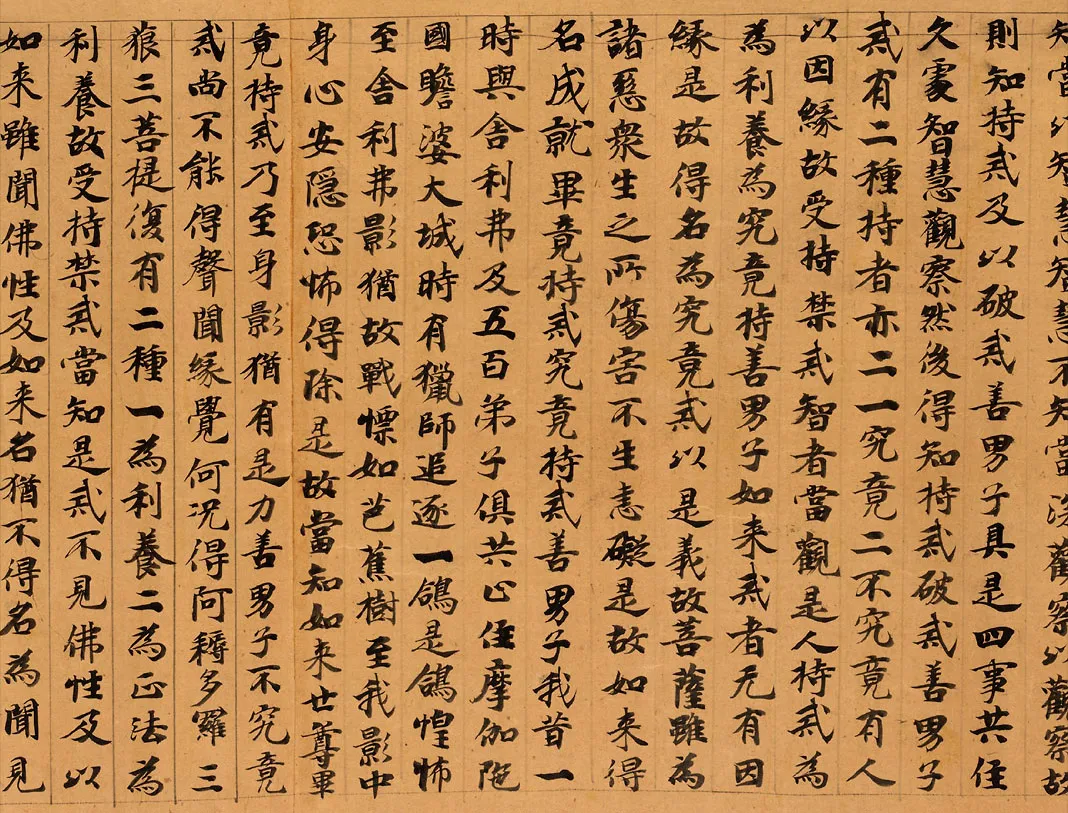 知當以智慧智慧不知當深觀察以觀察故
則知持戒及以破戒善男子具是四事共住
久處智慧觀察然後得知持戒破戒善男子
戒有二種持者亦二一究竟二不究竟有人
以因緣故受持禁戒智者當觀是人持戒為
為利養為究竟持善男子如来戒者无有因
緣是故得名為究竟戒以是義故菩薩雖為
諸惡衆生之所傷害不生恚礙是故如来得
名成就畢竟持戒究竟持戒善男子我昔一
時與舍利弗及五百弟子俱共止住摩伽陁
國瞻婆大城時有獵師追逐一鴿是鴿惶怖
至舍利弗影猶故戰慄如芭蕉樹至我影中
身心安隱恐怖得除是故當知如来世尊畢
竟持戒乃至身影猶有是力善男子不究竟
戒尚不能得聲聞緣覺何況得阿耨多羅三
藐三菩提復有二種一為利養二為正法為
利養故受持禁戒當知是戒不見佛性及以
如来雖聞佛性及如来名猶不得名為聞見